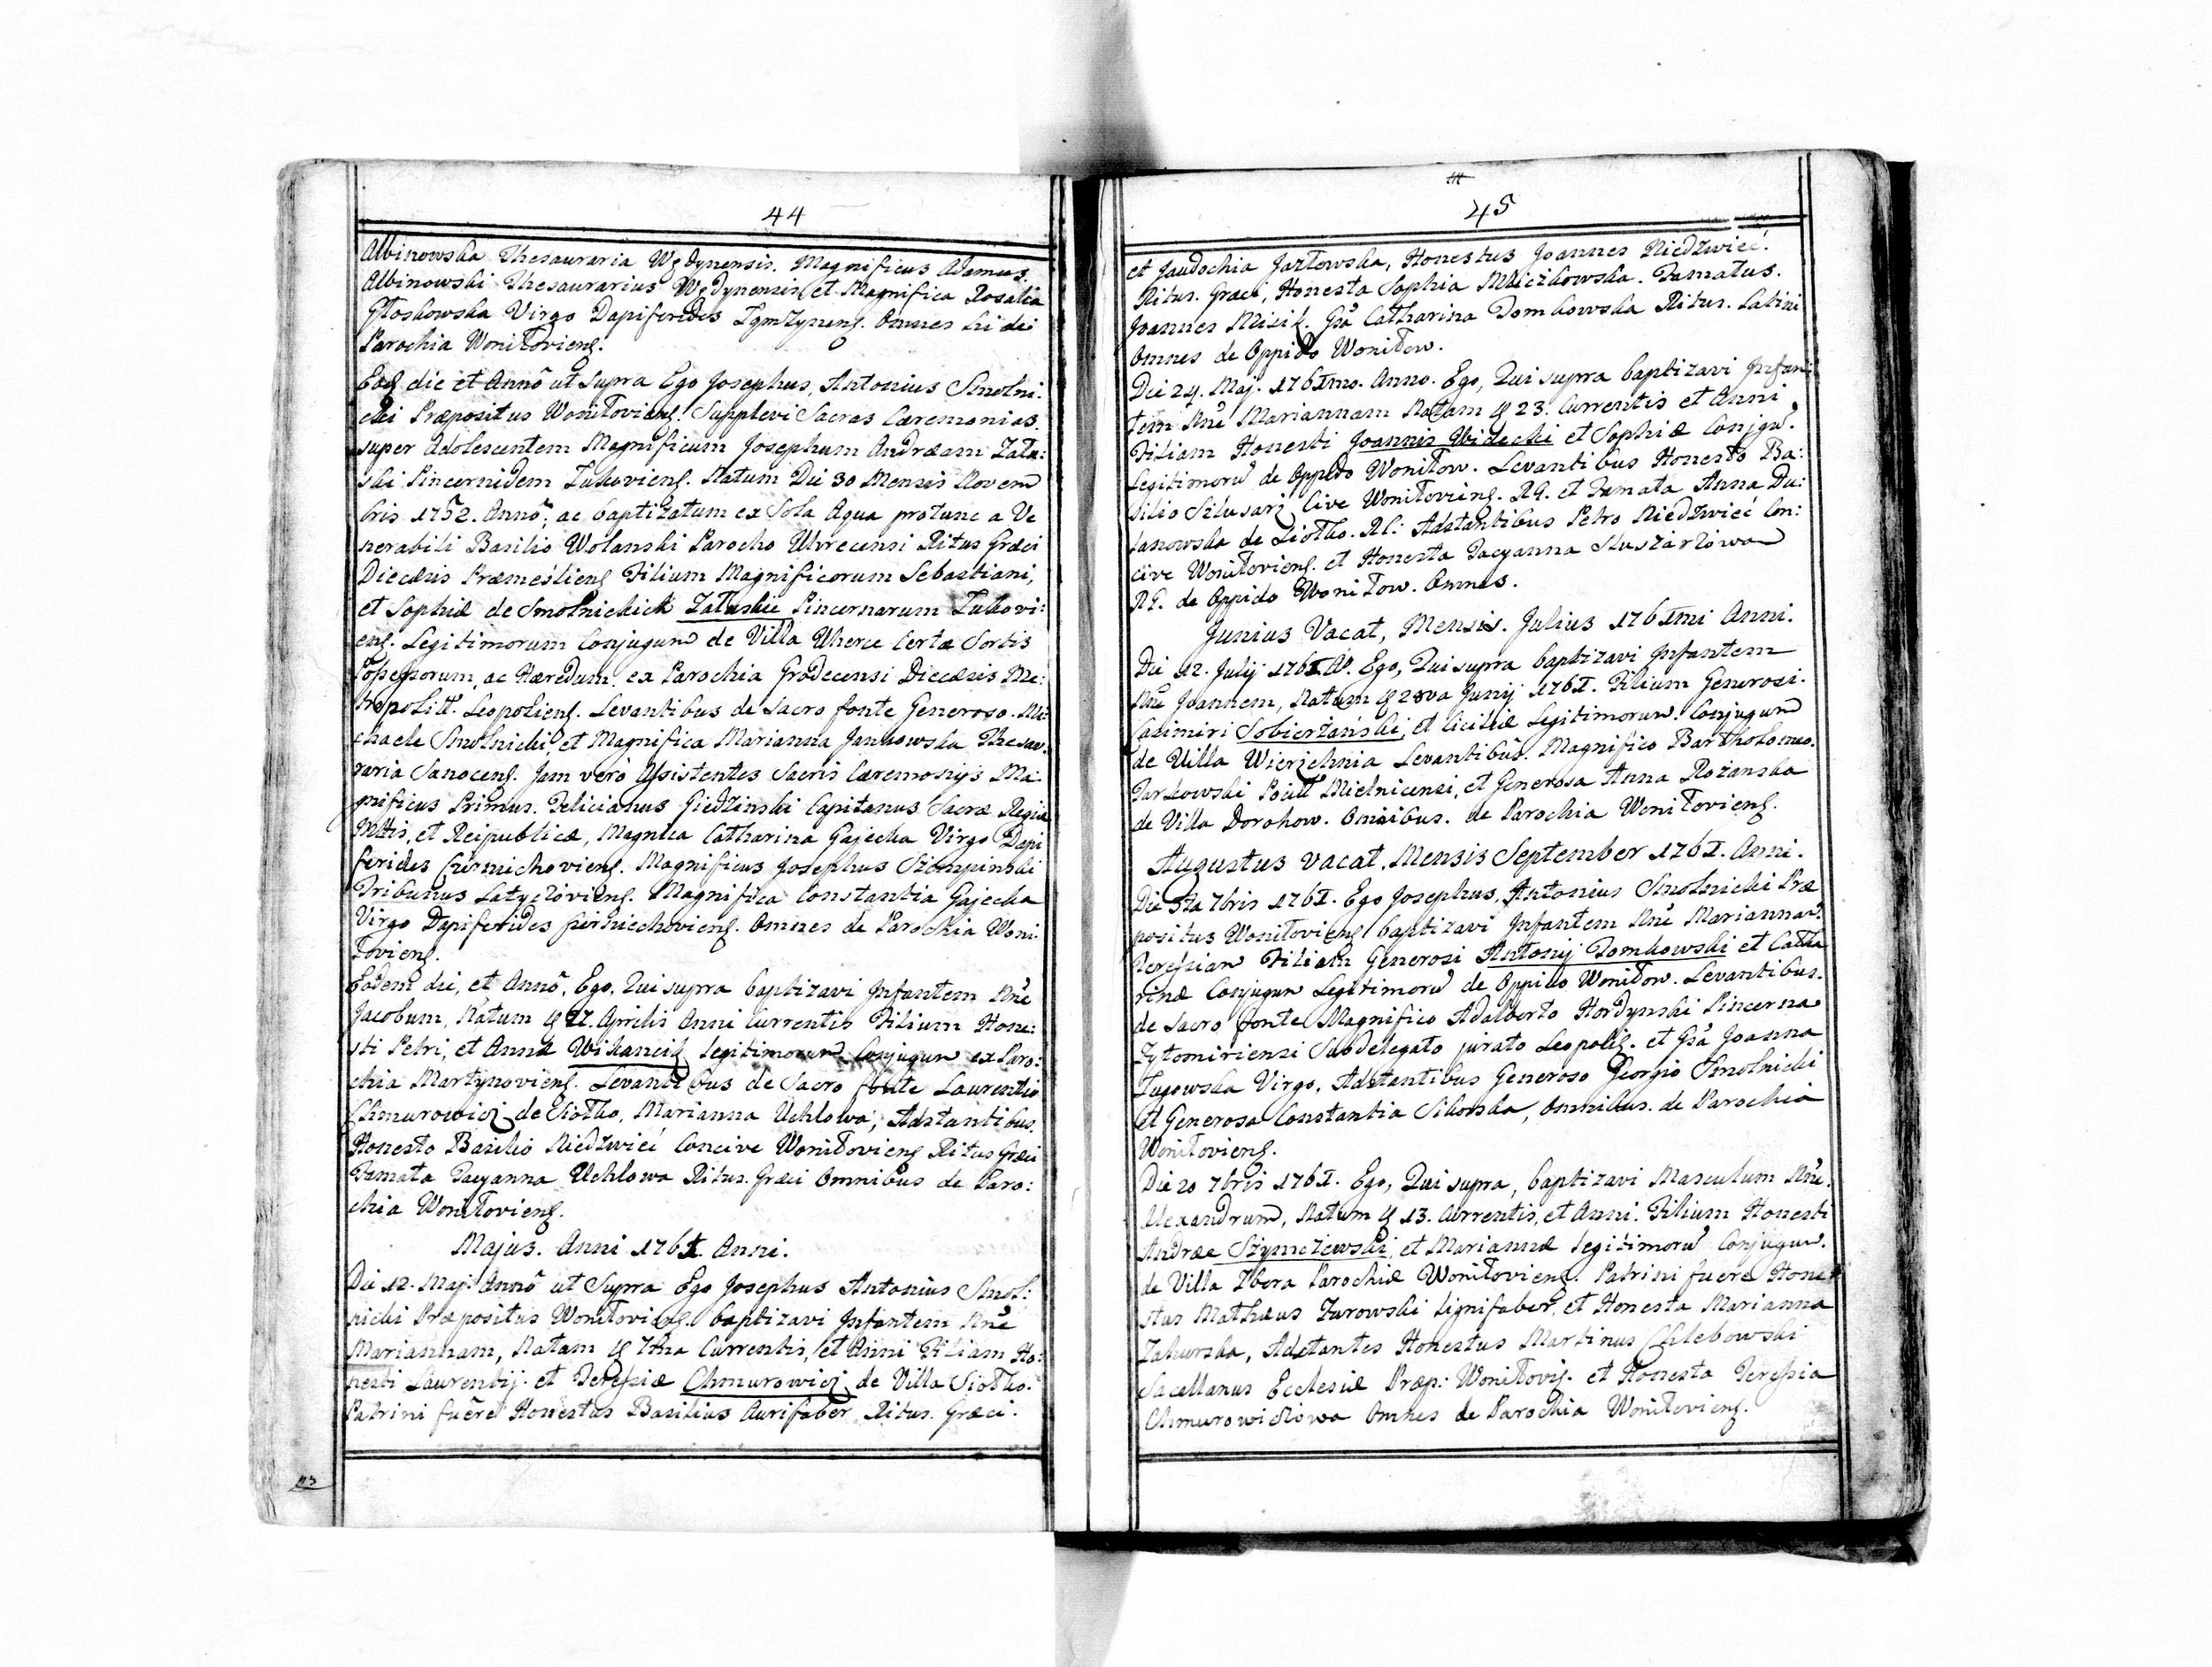 44
Albinowska Thesauraria Wędynensis. Magnificus Adamus.
Albinowski Thesaurarius Wędynensis et Magnifica Rosalia
Głoskowska Virgo Dapiferides Omnes hi dei
Parochia Woniłoviens.
Eod die et Annô ut supra Ego Josephus, Antonius Smolni:
cki Præpositus Woniłoviens. Supplevi Sacras Cæremonias.
super Adolescentem Magnificum Josephum Andræam Zału:
ski Pincernidem Łukoviens. Natum Die 30 Mensis Novem
bris 1752. Annô, ac baptizatum ex Sola Aqua protunc a Ve
nerabili Basilio Wolanski Parocho Uhrecensi Ritus Græci
Diecæsis Præmesliens Filium Magnificorum Sebastiani,
et Sophiæ de Smolnickich Załuskie Pincernarum Łukovi:
ens. Legitimorum Conjugum de Villa Uherce Certæ Sortis
Possessorum, ac Hæredum. ex Parochia Grodecensi Diecæsis Me:
tropolitt. Leopoliens. Levantibus de sacro fonte Generoso. Mi:
chaele Smolnicki et Magnifica Marianna Jankowska Thesau:
raria Sanocens. Jam verò Assistentes Sacris Cæremonijs Ma:
gnificus Primus. Felicianus Giedzinski Capitanus Sacræ Regiæ
Mttis, et Reipublicæ, Magnica Catharina Gajecka Virgo Dapi
ferides Czerniechoviens. Magnificus Josephus Szłompinski
Tribunus Latyczoviens. Magnifica Constantia Gajecka
Virgo Dapiferides Czerniechoviens. Omnes de Parochia Woni:
łoviens.
Eodem die, et Annô. Ego, Qui supra baptizavi Infantem Nne
Jacobum, Natum 27. Aprilis Anni Currentis Filium Hone:
sti Petri, et Annæ Wikancik legitimorum Conjugum ex Paro:
chia Martynoviens. Levantibus de Sacro fonte Laurentio
Chmurowicz de Siołko, Marianna Uchlowa, Adstantibus.
Honesto Basilio Niedzwieć Concive Woniłoviens Ritus Græci
Famata Tacyanna Uchlowa Ritus. Græci Omnibus de Paro:
chia Woniłoviens.
Majus. Anni 1761. Anni.
Die 12. Maj. Annô ut Supra Ego Josephus Antonius Smol:
nicki Præpositus Woniłoviens. baptizavi Infantem Nne
Mariannam, Natam 7ma Currentis, et Anni Filiam Ho:
nesti Laurentij. et Teressiæ Chmurowicz de Villa Siołko.
Patrini fuêre Honestus Basilius Aurifaber Ritus. Græci.
45
et Jaudochia Jazłowska, Honestus Joannes Niedzwieć.
Ritus. Græci, Honesta Sophia Mliczkowska. Famatus.
Joannes Misik. Gsa Catharina Domkowska Ritus. Latini
Omnes de Oppido Woniłow.
Die 24. Maj. 1761mo. Anno. Ego, Qui supra baptizavi Infan:
tem Nne Mariannam Natam 23. Currentis et Anni
Filiam Honesti Joannis Widecki et Sophiæ Conjgu.
Legitimoru de Oppido Woniłow. Levantibus Honesto Ba:
silio Szlusarz Cive Woniłoviens. RG. et Famata Anna Du:
lanowska de Siołko. RL: Adstantibus Petro Niedzwieć Con:
cive Woniłoviens. et Honesta Tacyanna Sluszarzowa
RG. de Oppido Woniłow. Omnes.
Junius Vacat, Mensis. Julius 1761mi Anni.
Die 12. July 1761. Ao. Ego, Qui supra baptizavi Infantem
Nne Joannem, Natum 28va Junij 1761. Filium Generosi.
Casimiri Sobierżański, et Cicilliæ Legitimorum. Conjugum
de Villa Wierzchnia Levantibus. Magnifico Bartholomeo.
Tarkowski Pocill Mielnicensi, et Generosa Anna Rożanska
de Villa Dorohow. Omnibus. de Parochia Woniłoviens.
Augustus vacat. Mensis September 1761. Anni.
Die 5ta 7bris 1761. Ego Josephus, Antonius Smolnicki Præ
positus Woniłoviens baptizavi Infantem Nne Mariannam
Teressiam Filiam Generosi Antonij Domkowski et Catha
rinæ Conjugum Legitimoru de Oppido Woniłow. Levantibus.
de Sacro fonte Magnifico Adalberto Hordynski Pincerna
Zytomiriensi Subdelegato jurato Leopolis. et Gsa Joanna
Ługowska Virgo. Adstantibus Generoso Georgio Smolnicki
et Generosa Constantia Sikorska, Omnibus. de Parochia
Woniłoviens.
Die 20 7bris 1761. Ego, Qui supra, baptizavi Masculum Nne.
Alexandrum, Natum 13. Currentis, et Anni. Filium Honesti
Andræe Szymczewski, et Mariannæ legitimoru Conjugum.
de Villa Zbora Parochiæ Woniłoviens. Patrini fuere Hone
stus Mathæus Żurowski Lignifaber, et Honesta Marianna
Zakurska, Adstantes Honestus Martinus Chlebowski
Sacellanus Ecclesiæ Præp: Woniłovis. et Honesta Teressia
Chmurowiczowa Omnes de Parochia Woniłoviens.